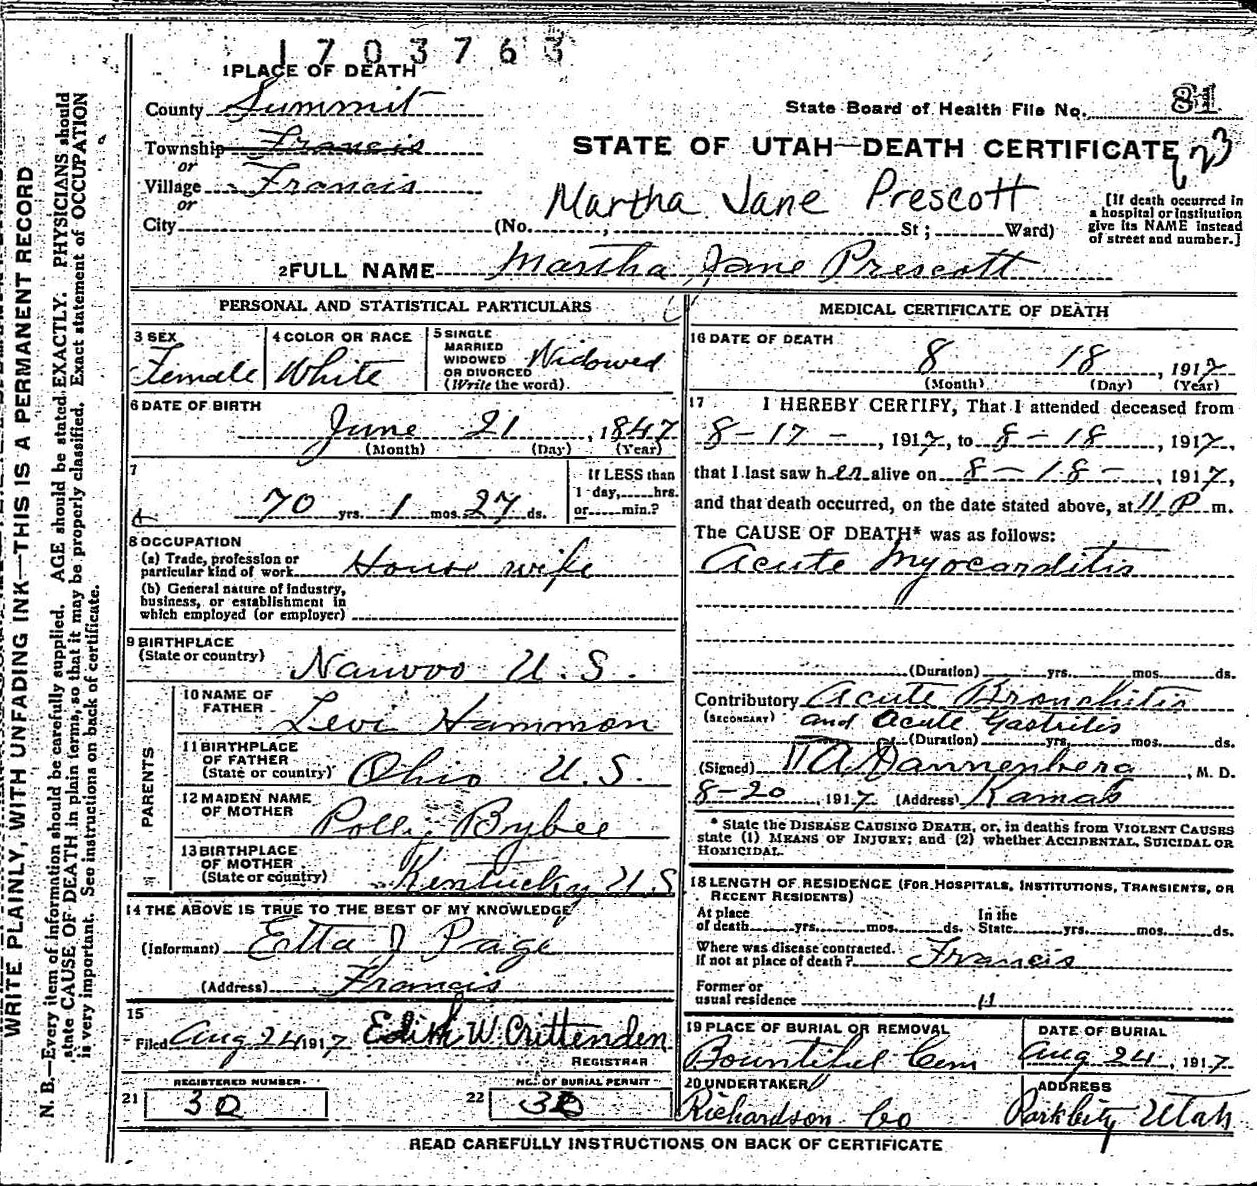 1703763
1 PLACE OF DEATH
County Summit
State Board of Health File No. 81
Township Francis
or
STATE OF UTAH—DEATH CERTIFICATE
Village Francis
or
Martha Jane Prescott
[If death occurred in
a hospital or institution
give its NAME instead
of street and number.]
City (No. , St; Ward)
2 FULL NAME Martha Jane Prescott
PERSONAL AND STATISTICAL PARTICULARS
3 SEX
Female
4 COLOR OR RACE
White
5 SINGLE
MARRIED
WIDOWED
OR DIVORCED
(Write the word)
Widowed
6 DATE OF BIRTH
June 21, 1847
(Month) (Day) (Year)
7
70 yrs. 1 mos. 27 ds.
If LESS than
1 day, hrs.
or min.?
8 OCCUPATION
(a) Trade, profession or
particular kind of work House wife
(b) General nature of industry,
business, or establishment in
which employed (or employer)
9 BIRTHPLACE
(State or country) Nauvoo U.S.
PARENTS
10 NAME OF
FATHER Levi Hammon
11 BIRTHPLACE
OF FATHER
(State or country) Ohio U.S.
12 MAIDEN NAME
OF MOTHER Polly Bybee
13 BIRTHPLACE
OF MOTHER
(State or country) Kentucky U.S
14 THE ABOVE IS TRUE TO THE BEST OF MY KNOWLEDGE
(Informant) Etta J Page
(Address) Francis
15
Filed Aug 24 1917 Edith W. Crittenden
REGISTRAR
REGISTERED NUMBER
21 30
NO. OF BURIAL PERMIT
22 30
MEDICAL CERTIFICATE OF DEATH
16 DATE OF DEATH
8 18, 1917
(Month) (Day) (Year)
17 I HEREBY CERTIFY, That I attended deceased from
8-17-, 1917, to 8-18, 1917,
that I last saw her alive on 8-18-, 1917,
and that death occurred, on the date stated above, at 11 P m.
The CAUSE OF DEATH* was as follows:
Acute Myocarditis
(Duration) yrs. mos. ds.
Contributory Acute Bronchitis
(SECONDARY) and Acute Gastritis
(Duration) yrs. mos. ds.
(Signed) Dannenberg, M. D.
8-20, 1917 (Address) Kamas
* State the DISEASE CAUSING DEATH, or, in deaths from VIOLENT CAUSES
state (1) MEANS OF INJURY; and (2) whether ACCIDENTAL, SUICIDAL OR
HOMICIDAL.
18 LENGTH OF RESIDENCE (FOR HOSPITALS, INSTITUTIONS, TRANSIENTS, OR
RECENT RESIDENTS)
At place
of death yrs. mos. ds.
In the
State yrs. mos. ds.
Where was disease contracted.
if not at place of death? Francis
Former or
usual residence "
19 PLACE OF BURIAL OR REMOVAL
Bountiful Cem
DATE OF BURIAL
Aug 24, 1917
20 UNDERTAKER
Richardson Co
ADDRESS
Park City Utah
READ CAREFULLY INSTRUCTIONS ON BACK OF CERTIFICATE
WRITE PLAINLY, WITH UNFADING INK—THIS IS A PERMANENT RECORD
N. B.—Every item of information should be carefully supplied. AGE should be stated EXACTLY. PHYSICIANS should
state CAUSE OF DEATH in plain terms, so that it may be properly classified. Exact statement of OCCUPATION
is very important. See instructions on back of certificate.